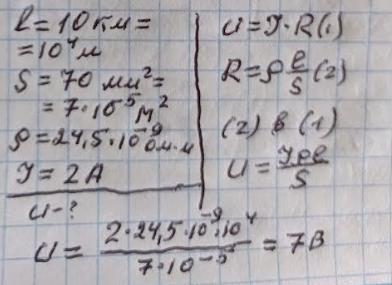 l = 10 км =
= 10⁴ м
S = 70 мм² =
= 7·10⁻⁵ м²
ρ = 24,5·10⁻⁹ Ом·м
I = 2 А
U - ?
U = I·R (1)
R = ρ l/S (2)
(2) в (1)
U = Iρl/S
U = 2·24,5·10⁻⁹·10⁴ / 7·10⁻⁵ = 7В